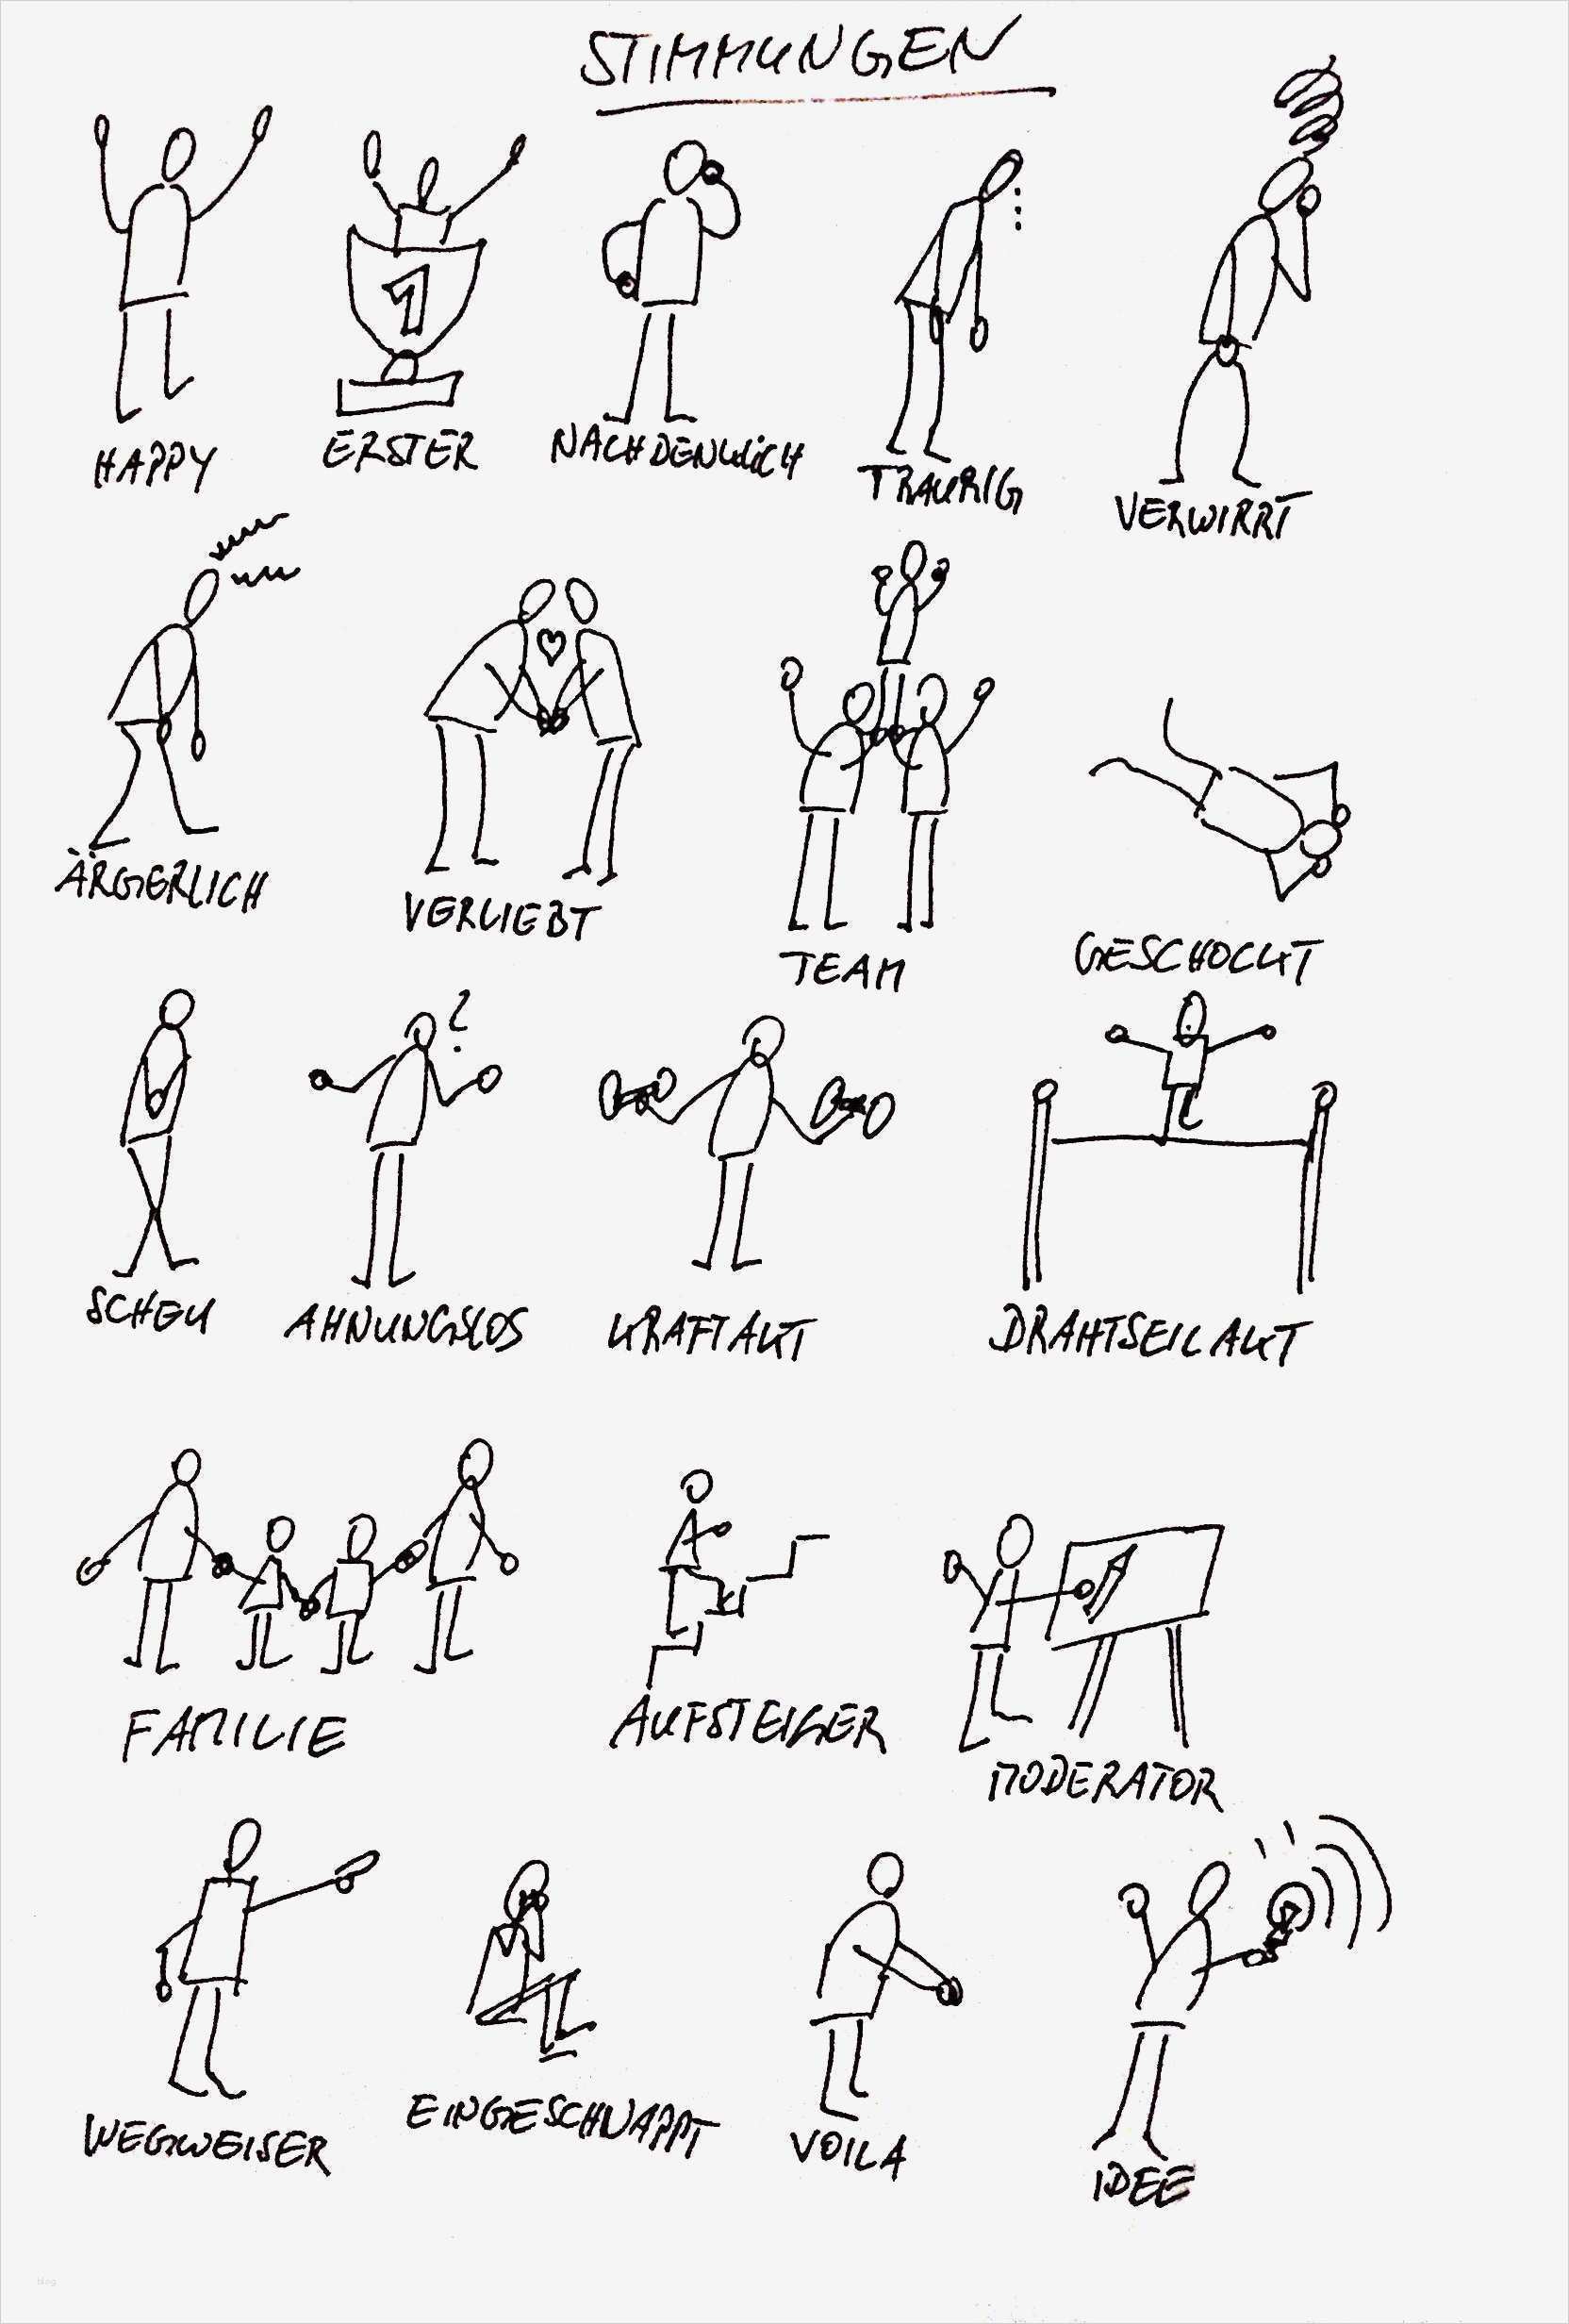 STIMMUNGEN
HAPPY
ERSTER
NACHDENKLICH
TRAURIG
VERWIRRT
ÄRGERLICH
VERLIEBT
TEAM
GESCHOCKT
SCHEU
?
AHNUNGSLOS
KRAFTAKT
DRAHTSEILAKT
FAMILIE
AUFSTEIGER
MODERATOR
WEGWEISER
EINGESCHNAPPT
VOILA
IDEE
1